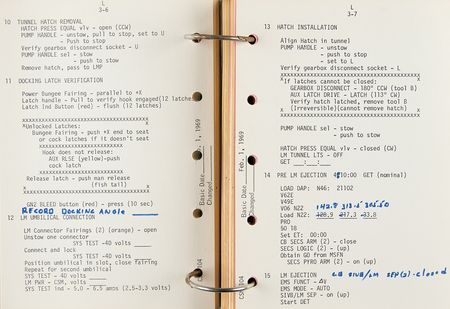 L
3-6
10 TUNNEL HATCH REMOVAL
HATCH PRESS EQUAL vlv - open (CCW)
PUMP HANDLE - unstow, pull to stop, set to U
- Push to stop
Verify gearbox disconnect socket - U
PUMP HANDLE sel - stow
- push to stow
Remove hatch, pass to LMP
11 DOCKING LATCH VERIFICATION
Power Bungee Fairing - parallel to +X
Latch handle - Pull to verify hook engaged(12 latches)
Latch Ind Button (red) - flush (12 latches)
xxxxxxxxxxxxxxxxxxxxxxxxxxxxxxxxx
xUnlocked Latches:
Bungee Fairing - push +X end to seat
or cock latches if it doesn't seat
xxxxxxxxxxxxxxxxxxxxxxxxxx
Hook does not release:
AUX RLSE (yellow)-push
cock latch
xxxxxxxxxxxxxxxxxxxxxxxxxx
Release latch - push nan release
(fish tail)
xxxxxxxxxxxxxxxxxxxxxxxxxxxxxxxxx
GN2 BLEED button (red) - press (10 sec)
RECORD DOCKING ANGLE ____
12 LM UMBILICAL CONNECTION
LM Connector Fairings (2) (orange) - open
Unstow one connector
SYS TEST -40 volts ____
Connect and lock
SYS TEST -40 volts ____
Position umbilical in slot, close fairing
Repeat for second umbilical
SYS TEST - 4D volts ____
LM PWR - CSM, volts ____
SYS TEST ind - 5.0 - 6.5 amps (2.5-3.3 volts)
Basic Date
Changed
Feb. 1, 1969
CS
104
L
3-7
13 HATCH INSTALLATION
Align Hatch in tunnel
PUMP HANDLE - unstow
- push to stop
- set to L
Verify gearbox disconnect socket - L
xxxxxxxxxxxxxxxxxxxxxxxxxxxxxxxxxxxx
If latches cannot be closed:
GEARBOX DISCONNECT - 180° CCW (tool B)
AUX LATCH DRIVE - LATCH (113° CW)
Verify hatch latched, remove tool B
(Irreversible)(cannot remove hatch)
xxxxxxxxxxxxxxxxxxxxxxxxxxxxxxxxxxxx
PUMP HANDLE sel - stow
- push to stow
HATCH PRESS EQUAL vlv - closed (CW)
LM TUNNEL LTS - OFF
GET ___:___:___
14 PRE LM EJECTION 4:10:00 GET (nominal)
LOAD DAP: N46: 21102
V62E
V49E
V06 N22
Load N22:
PRO
SO 18
Set ET: 00:00
CB SECS ARM (2) - close
SECS LOGIC (2) - (up)
Obtain GO from MSFN
SECS PYRO ARM (2) - on (up)
15 LM EJECTION
EMS FUNCT - ΔV
EMS MODE - AUTO
SIVB/LM SEP - on (up)
Start DET
Basic Date
Changed
Feb. 1, 1969
CSM
104